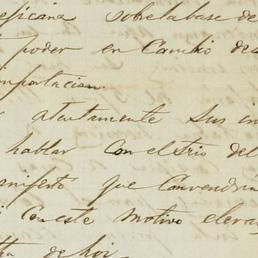 sobre la base de
poder en Cambio de
importacion.
atentamente sus in
hablar con el trio del
anifiesto que Convendria
Con este motivo elevar
de hoi